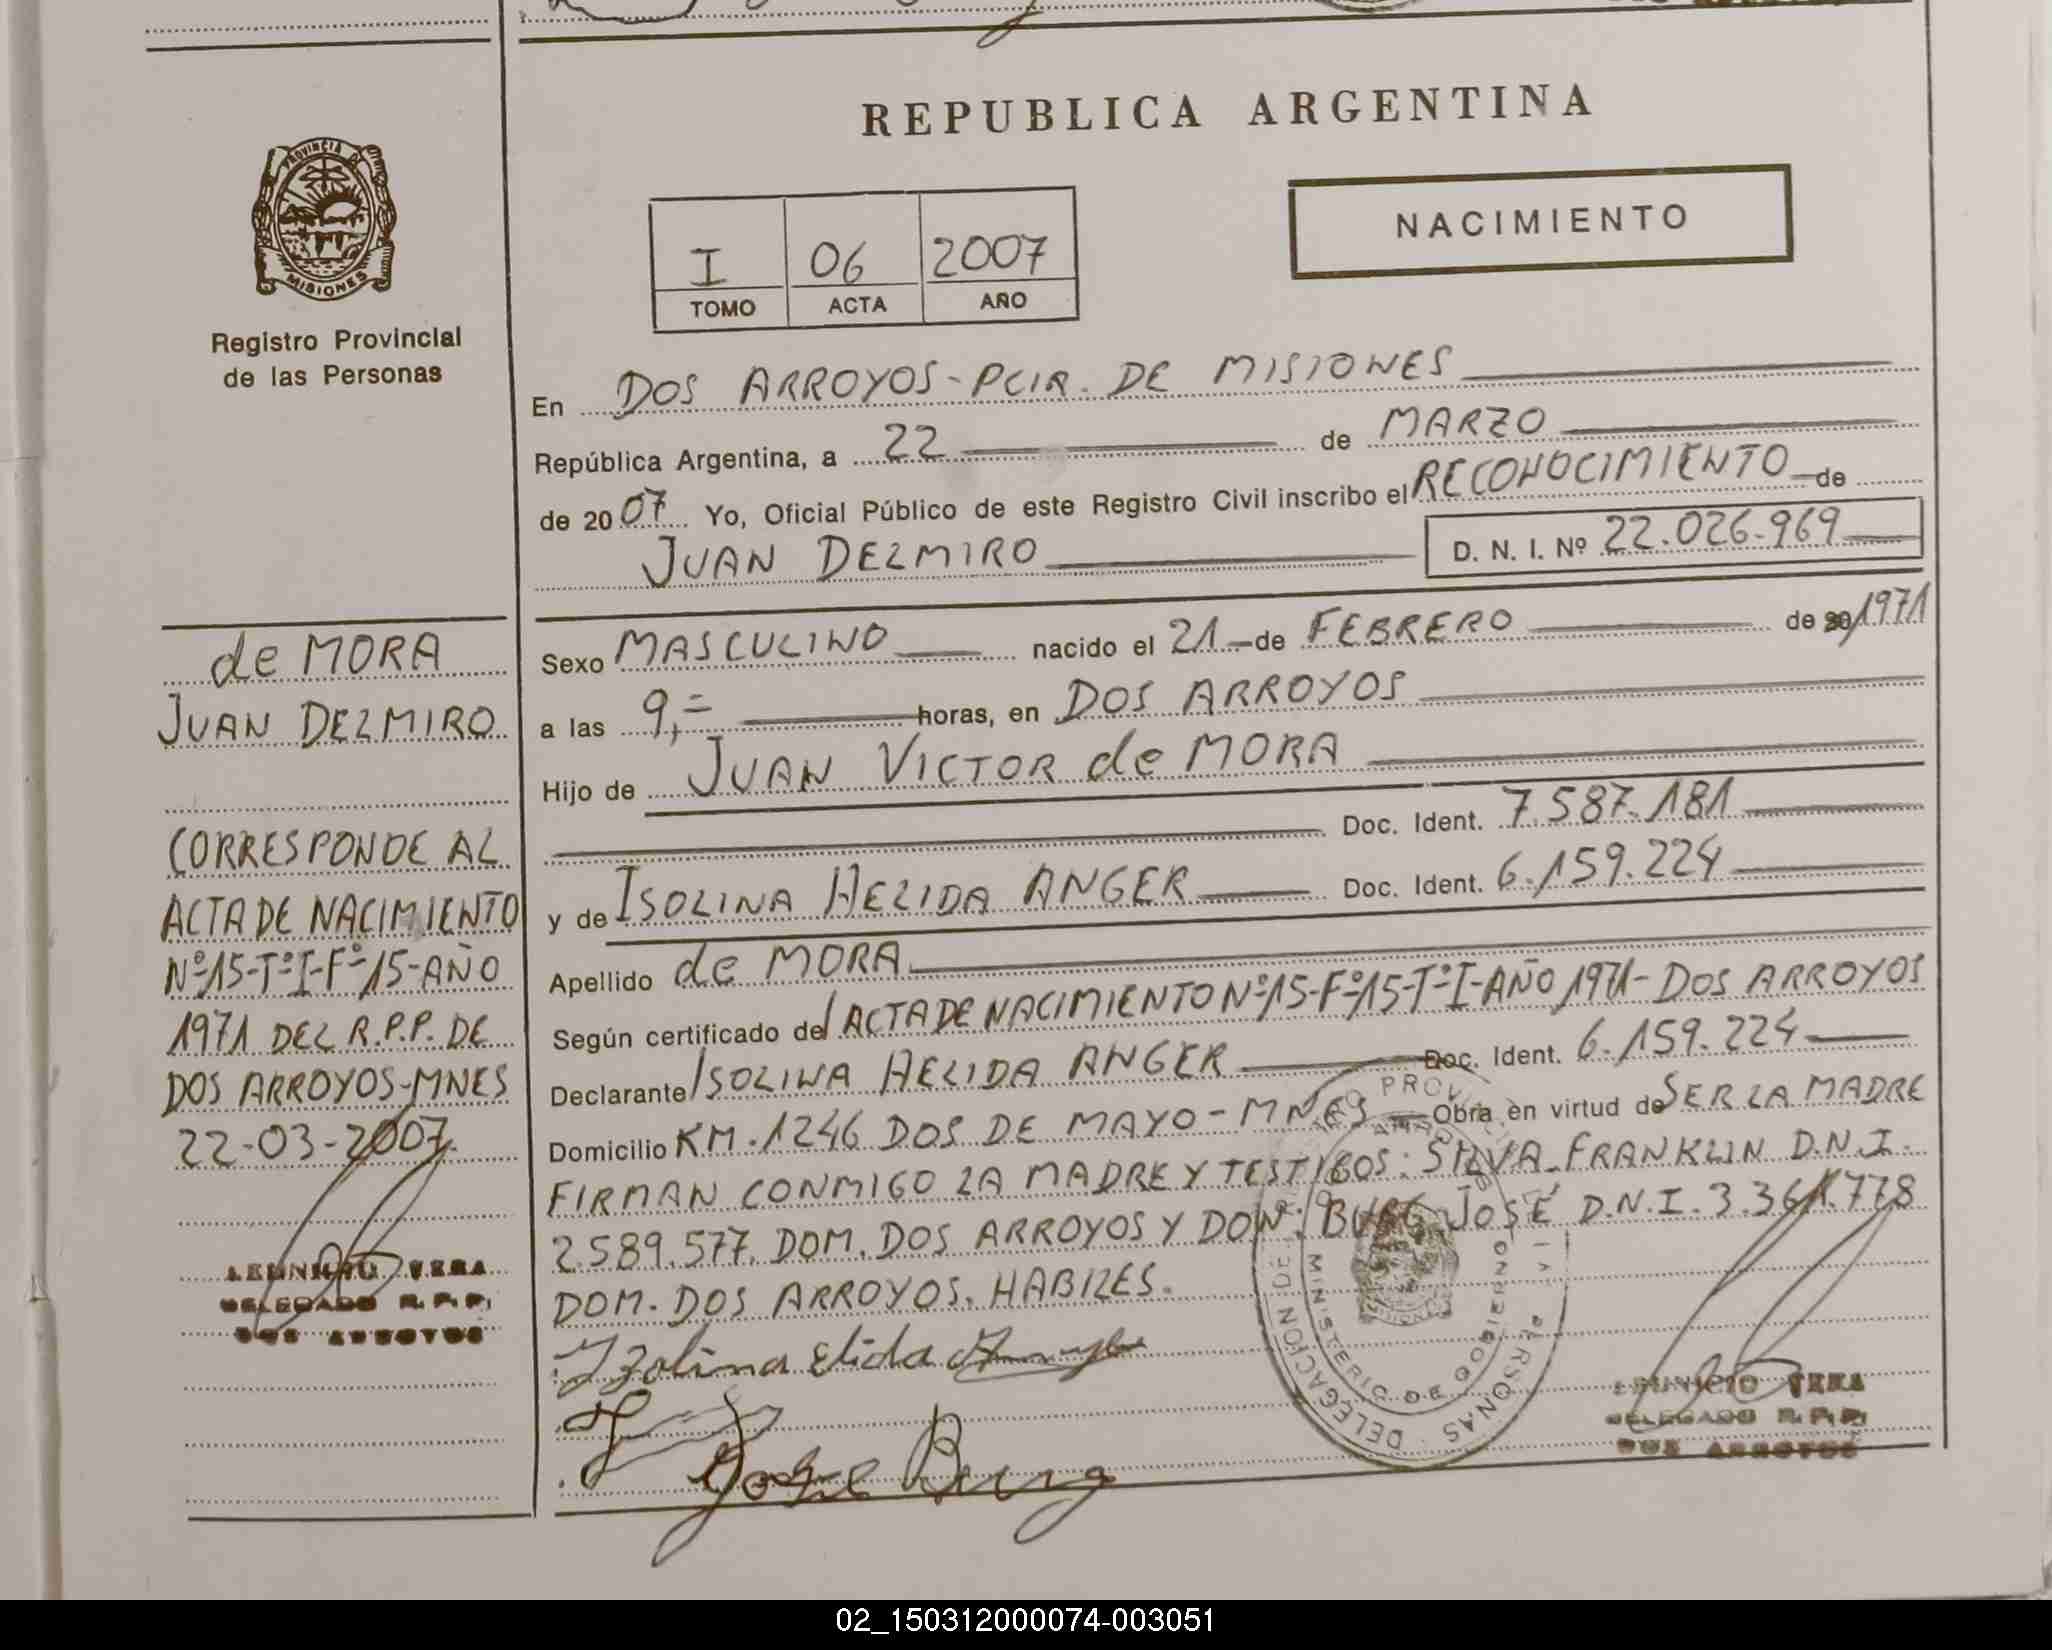 REPUBLICA ARGENTINA
NACIMIENTO
I 06 2007
TOMO ACTA AÑO
PROVINCIA DE
MISIONES
Registro Provincial
de las Personas
de MORA
JUAN DELMIRO
CORRESPONDE AL
ACTA DE NACIMIENTO
Nº15-TºI-Fº15-AÑO
1971 DEL R.P.P. DE
DOS ARROYOS-MNES
22-03-2007.
LEUNICIO VERA
DELEGADO R.P.P.
DOS ARROYOS
En DOS ARROYOS-PCIA. DE MISIONES
República Argentina, a 22 de MARZO
de 2007 Yo, Oficial Público de este Registro Civil inscribo el RECONOCIMIENTO de
JUAN DELMIRO D. N. I. Nº 22.026.969
Sexo MASCULINO nacido el 21 de FEBRERO de 20/1971
a las 9,= horas, en DOS ARROYOS
Hijo de JUAN VICTOR de MORA
Doc. Ident. 7.587.181
y de ISOLINA HELIDA ANGER Doc. Ident. 6.159.224
Apellido de MORA
Según certificado de/ ACTA DE NACIMIENTO Nº15-Fº15-TºI-AÑO 1971-DOS ARROYOS
Declarante ISOLINA HELIDA ANGER Doc. Ident. 6.159.224
Domicilio KM.1246 DOS DE MAYO-MNES Obra en virtud de SER LA MADRE
FIRMAN CONMIGO LA MADRE Y TESTIGOS: SILVA FRANKLIN D.N.I.
2.589.577. DOM. DOS ARROYOS Y DON: BURG JOSÉ D.N.I. 3.361.778
DOM. DOS ARROYOS. HABILES.
Izolina elida
LEUNICIO VERA
DELEGADO R.P.P.
DOS ARROYOS
DELEGACION DE
MINISTERIO DE GOBIERNO
02_150312000074-003051